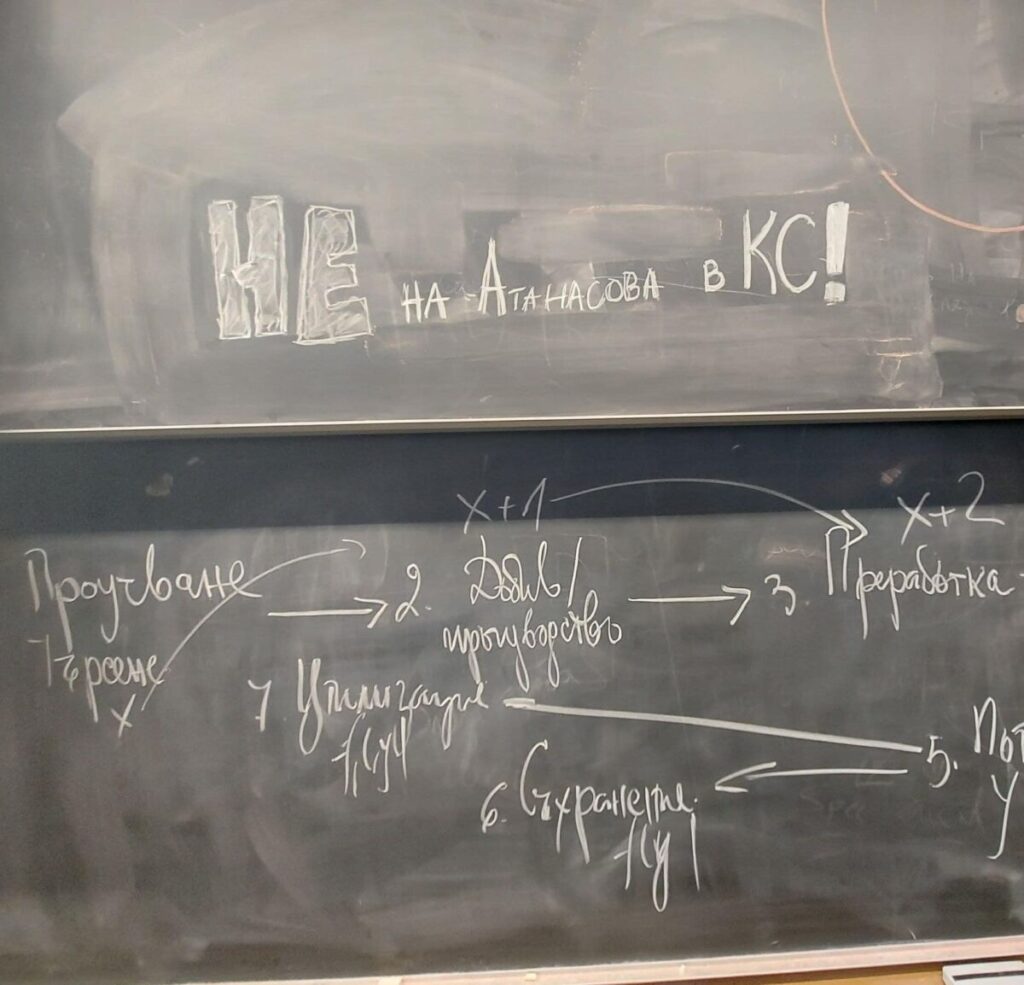 НЕ на Атанасова в КС!
x+1
x+2
Проучване
Търсене
x
2. Добив/
производство
3. Преработка
7. Утилизация
5. Пот
6. Съхранение